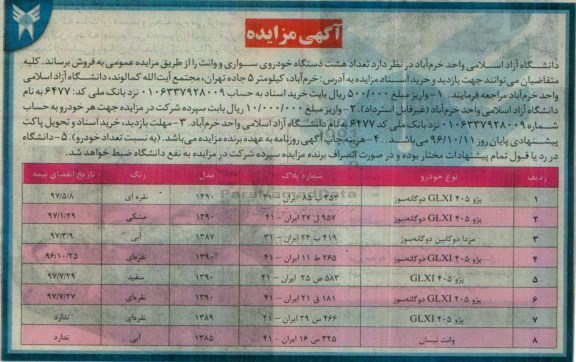 آگهی مزایده
دانشگاه آزاد اسلامی واحد خرم‌آباد در نظر دارد تعداد هشت دستگاه خودروی سواری و وانت را از طریق مزایده عمومی به فروش برساند. کلیه
متقاضیان می‌توانند جهت بازدید و خرید اسناد مزایده به آدرس: خرم‌آباد، کیلومتر ۵ جاده تهران، مجتمع آیت‌الله کمالوند، دانشگاه آزاد اسلامی
واحد خرم‌آباد مراجعه فرمایند. ۱- واریز مبلغ ۵۰۰/۰۰۰ ریال بابت خرید اسناد به حساب ۰۱۰۶۳۳۷۹۲۸۰۰۹ نزد بانک ملی کد: ۶۴۷۷ به نام
دانشگاه آزاد اسلامی واحد خرم‌آباد (غیرقابل استرداد). ۲- واریز مبلغ ۱۰/۰۰۰/۰۰۰ ریال بابت سپرده شرکت در مزایده جهت هر خودرو به حساب
شماره ۰۱۰۶۳۳۷۹۲۸۰۰۹ نزد بانک ملی کد ۶۴۷۷ به نام دانشگاه آزاد اسلامی واحد خرم‌آباد. ۳- مهلت بازدید، خرید اسناد و تحویل پاکت
پیشنهادی پایان روز ۹۶/۱۰/۱۱ می‌باشد. ۴- هزینه چاپ آگهی روزنامه به عهده برنده مزایده می‌باشد. (به نسبت تعداد خودرو). ۵- دانشگاه
در رد یا قبول تمام پیشنهادات مختار بوده و در صورت انصراف برنده مزایده سپرده شرکت در مزایده به نفع دانشگاه ضبط خواهد شد.
ردیف نوع خودرو شماره پلاک مدل رنگ تاریخ انقضای بیمه
۱ پژو ۴۰۵ GLXI دوگانه‌سوز ۲۵۳ ب ۸۵ ایران ۱۳۹۰ نقره ای ۹۷/۵/۸
۲ پژو ۴۰۵ GLXI دوگانه‌سوز ۹۵۷ ل ۲۷ ایران - ۴۱ ۱۳۹۰ مشکی ۹۷/۱/۲۹
۳ مزدا دوکابین دوگانه‌سوز ۴۱۹ ب ۲۴ ایران - ۳۱ ۱۳۸۷ آبی ۹۷/۳/۹
۴ پژو ۴۰۵ GLXI دوگانه‌سوز ۲۶۵ ط ۱۱ ایران - ۴۱ ۱۳۹۰ نقره‌ای ۹۶/۱۰/۲۵
۵ پژو ۴۰۵ GLXI ۵۸۳ ص ۲۵ ایران - ۴۱ ۱۳۹۰ سفید ۹۷/۷/۲۹
۶ پژو ۴۰۵ GLXI دوگانه‌سوز ۱۸۱ ق ۲۱ ایران - ۴۱ ۱۳۹۰ نقره‌ای ۹۷/۷/۲۷
۷ پژو ۴۰۵ GLXI ۴۶۶ س ۳۹ ایران - ۲۱ ۱۳۸۹ نقره‌ای ندارد
۸ وانت نیسان ۳۲۵ س ۱۶ ایران - ۴۱ ۱۳۸۵ آبی ندارد
ParsNamadData